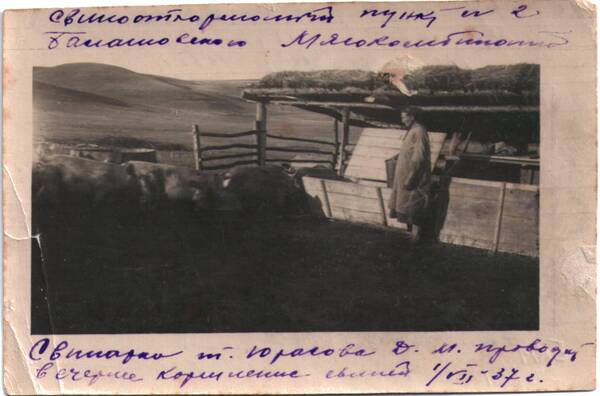 Свиооткормочный пункт № 2
Балашовского Мясокомбината
Свинарка т. Юрасова Д. М. проводит
вечернее кормление свиней 1/VII-37 г.